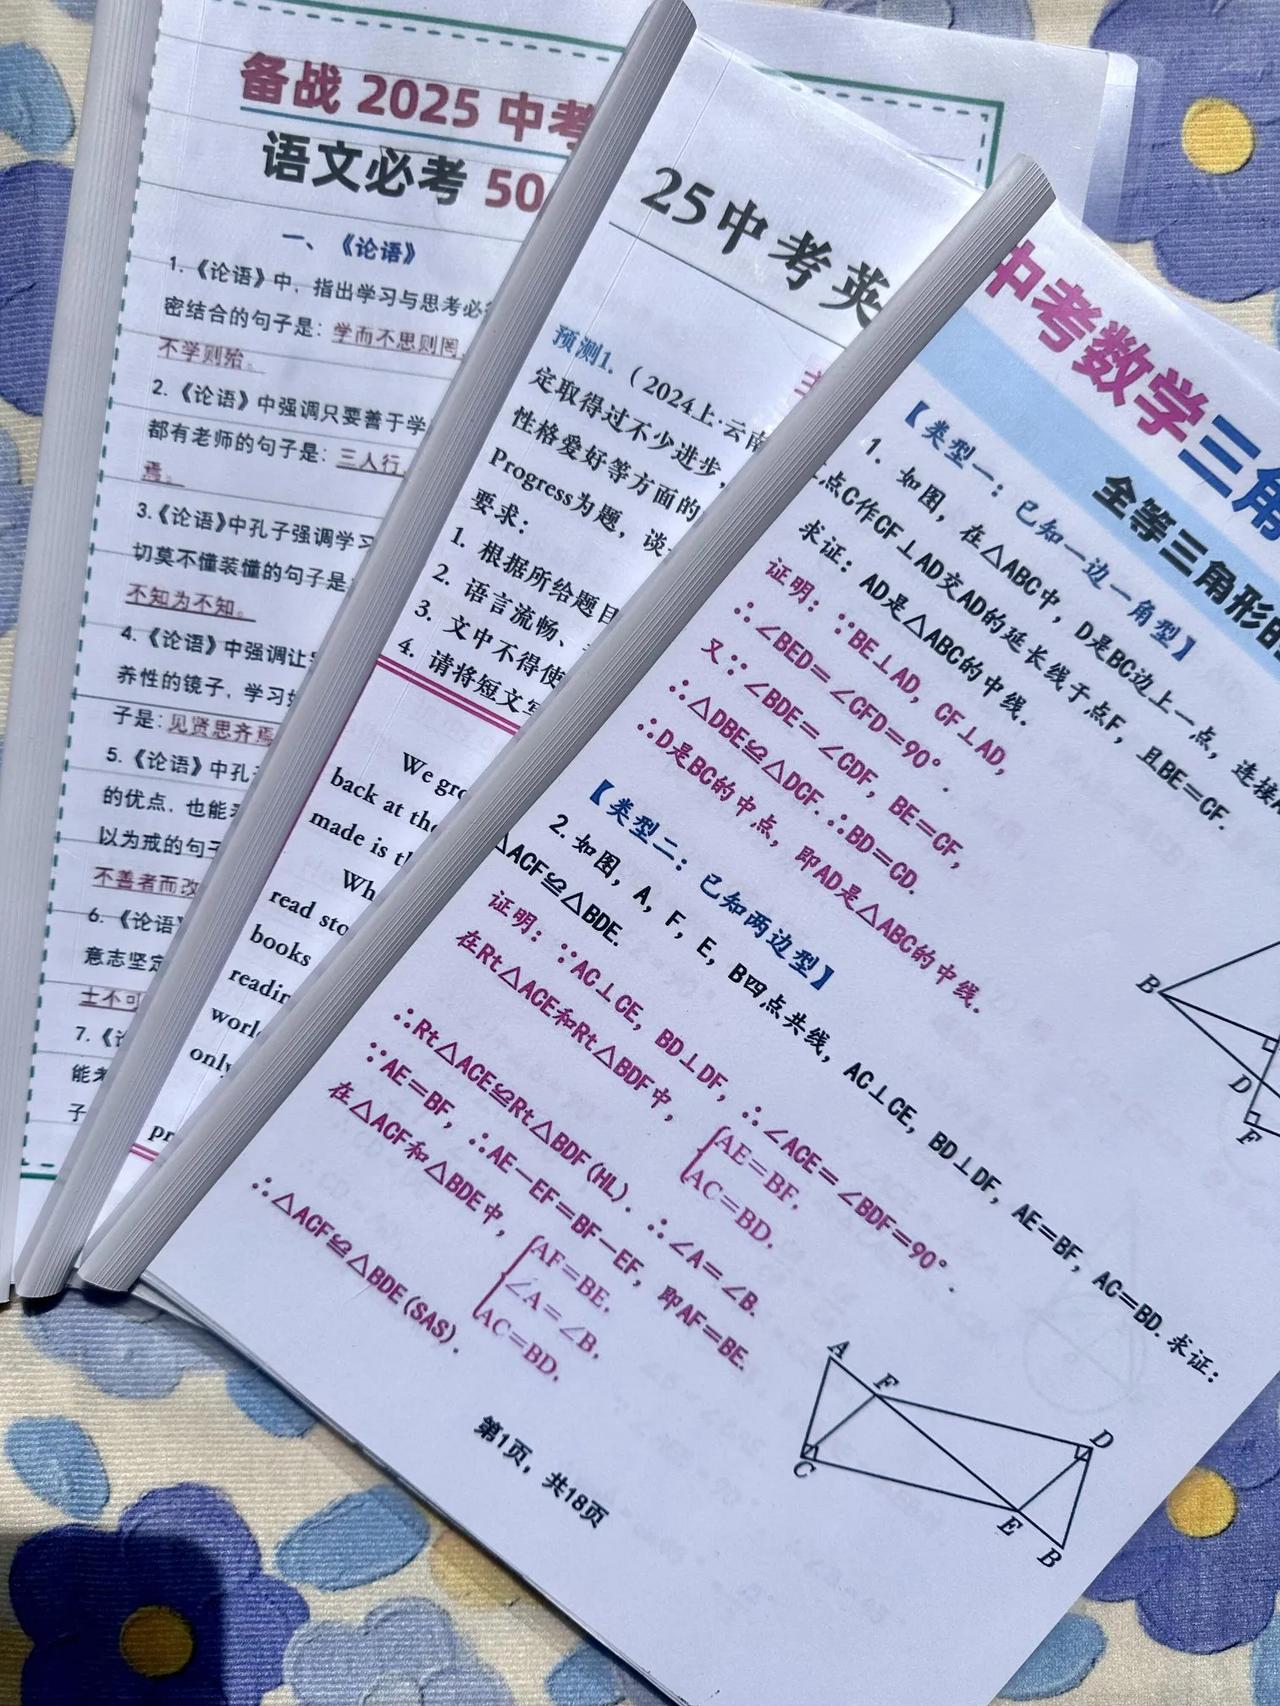 备战 2025 中考
语文必考 50
一、《论语》
1.《论语》中，指出学习与思考必
密结合的句子是：学而不思则罔，
不学则殆。
2.《论语》中强调只要善于学
都有老师的句子是：三人行，
焉。
3.《论语》中孔子强调学习
切莫不懂装懂的句子是
不知为不知。
4.《论语》中强调让
养性的镜子，学习
子是：见贤思齐焉
5.《论语》中孔
的优点，也能
以为戒的句子
不善者而改
6.《论语》
意志坚定
士不可
7.《论
能
子
25中考英
预测1.（2024上·云南
定取得过不少进步，
性格爱好等方面的
Progress为题，谈
要求：
1. 根据所给题目
2. 语言流畅、
3. 文中不得使
4. 请将短文写
We gro
back at the
made is th
Wh
read sto
books
readin
worl
only
pr
中考数学三角
全等三角形的
【类型一：已知一边一角型】
1. 如图，在△ABC中，D是BC边上一点，连接
点C作CF⊥AD交AD的延长线于点F，且BE＝CF.
求证：AD是△ABC的中线.
证明：∵BE⊥AD，CF⊥AD，
∴∠BED＝∠CFD＝90°.
又∵∠BDE＝∠CDF，BE＝CF，
∴△DBE≌△DCF.∴BD＝CD.
∴D是BC的中点，即AD是△ABC的中线.
B
D
F
【类型二：已知两边型】
2. 如图，A，F，E，B四点共线，AC⊥CE，BD⊥DF，AE＝BF，AC＝BD.求证：
△ACF≌△BDE.
证明：∵AC⊥CE，BD⊥DF，∴∠ACE＝∠BDF＝90°.
在Rt△ACE和Rt△BDF中，{AE＝BF，
AC＝BD，
∴Rt△ACE≌Rt△BDF(HL).∴∠A＝∠B.
∵AE＝BF，∴AE－EF＝BF－EF，即AF＝BE.
在△ACF和△BDE中，{AF＝BE，
∠A＝∠B，
AC＝BD，
∴△ACF≌△BDE(SAS).
A
F
D
C
E
B
第1页，共18页